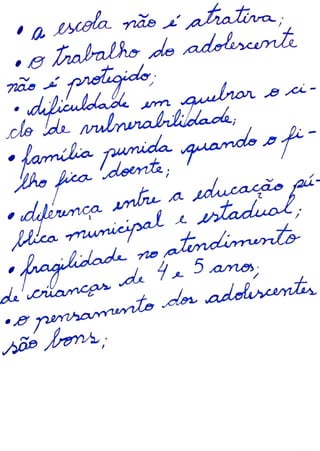 • a escola não é atrativa;
• o trabalho do adolescente
não é protegido;
• dificuldade em quebrar o ci-
clo de vulnerabilidade;
• família punida quando o fi-
lho fica doente;
• diferença entre a educação pú-
blica municipal e estadual;
• fragilidade no atendimento
de crianças de 4 e 5 anos;
• o pensamento dos adolescentes
são bons;